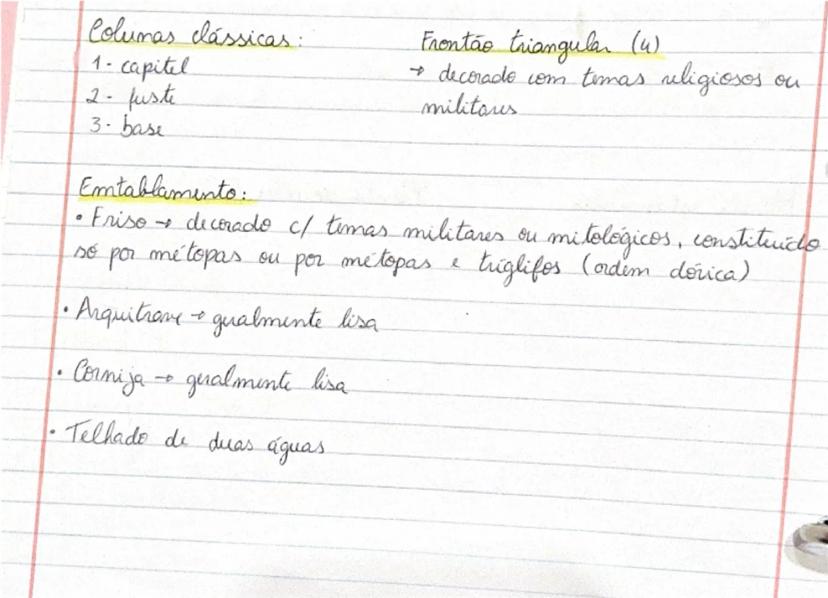 Colunas clássicas:
1- capitel
2- fuste
3- base
Frontão triangular (4)
→ decorado com temas religiosos ou
militares
Entablamento:
• Friso → decorado c/ temas militares ou mitológicos, constituído
só por métopas ou por métopas e tríglifos (ordem dórica)
• Arquitrave → geralmente lisa
• Cornija → geralmente lisa
• Telhado de duas águas